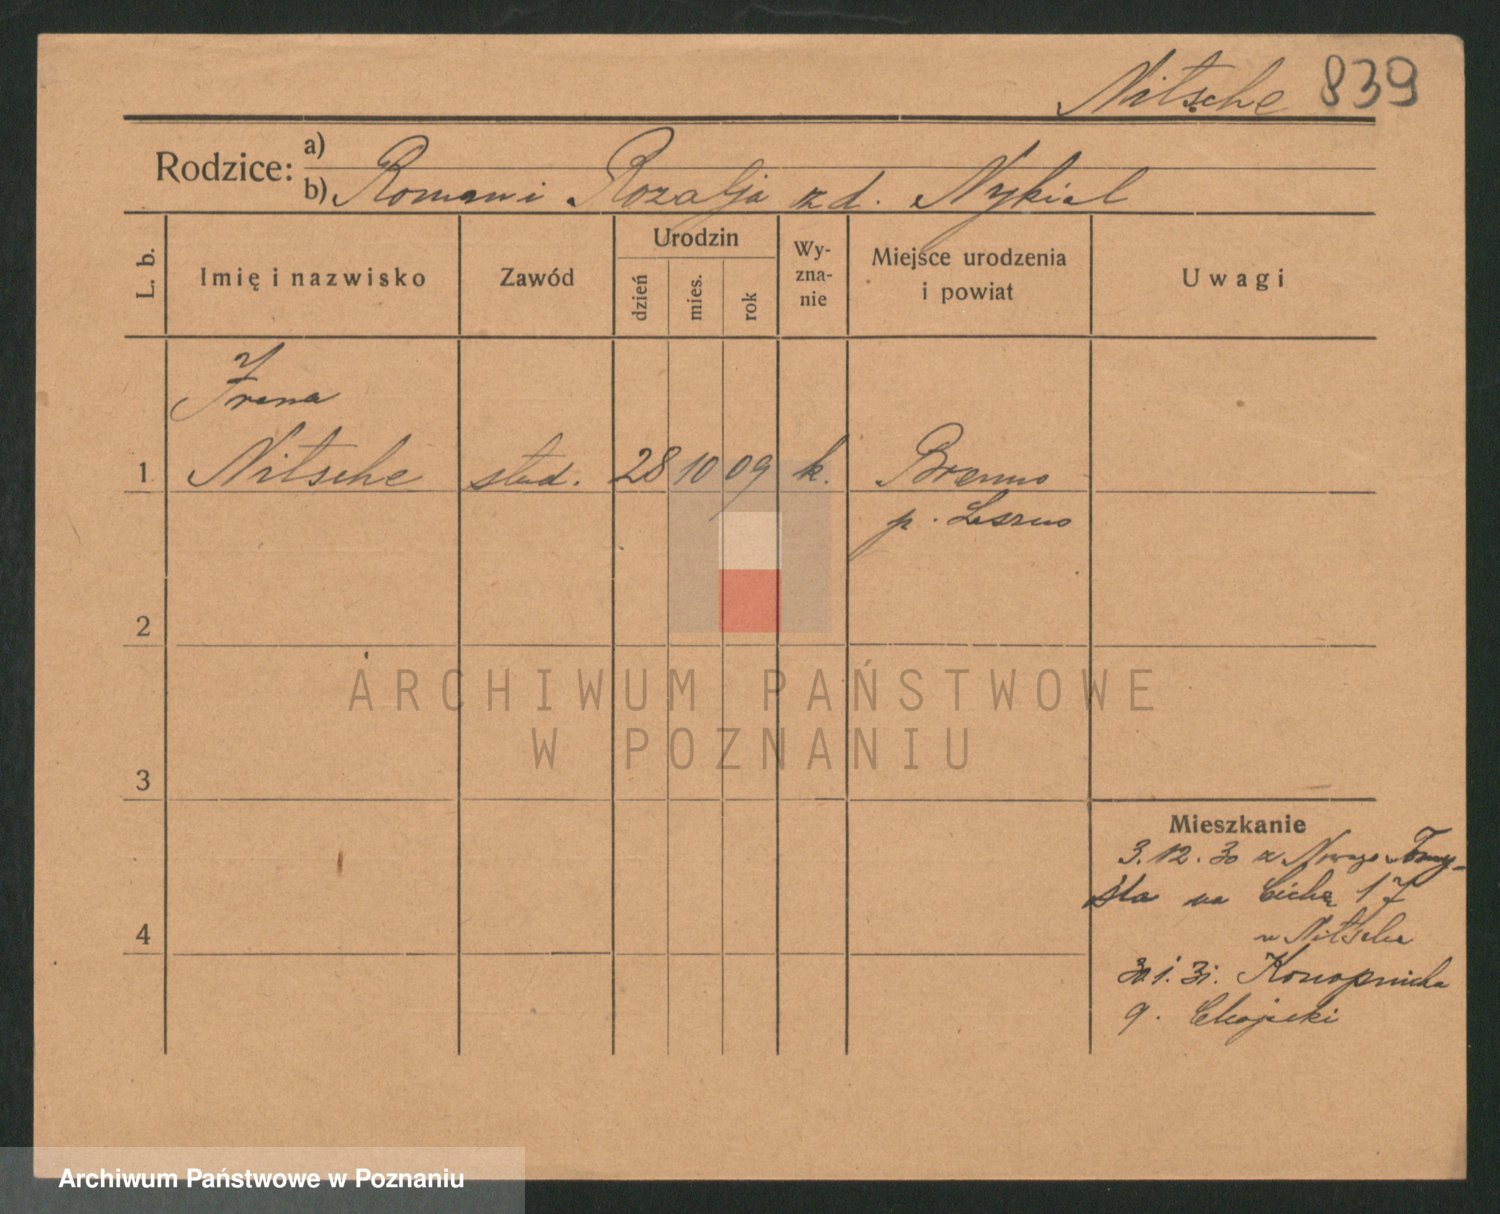 Nitsche 839
Rodzice: a)
b) Roman i Rozalja z d. Nykiel
L. b.
Imię i nazwisko
Zawód
Urodzin
dzień
mies.
rok
Wy-
zna-
nie
Miejsce urodzenia
i powiat
Uwagi
Irena
1 Nitsche stud. 28 10 09 k. Brenno
p. Leszno
2
ARCHIWUM PAŃSTWOWE
W POZNANIU
3
Mieszkanie
3.12.30 z Nowego Tomy-
śla na Cichą 17
u Nitsche
4
30.1.31. Konopnicka
9.
Archiwum Państwowe w Poznaniu